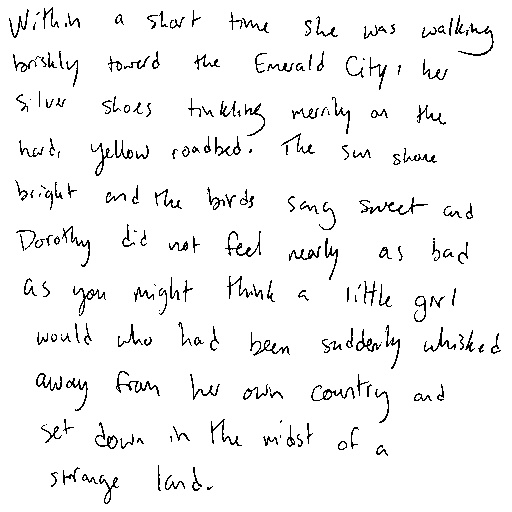 Within a short time she was walking
briskly toward the Emerald City, her
silver shoes tinkling merrily on the
hard, yellow roadbed. The sun shone
bright and the birds sang sweet and
Dorothy did not feel nearly as bad
as you might think a little girl
would who had been suddenly whisked
away from her own country and
set down in the midst of a
strange land.